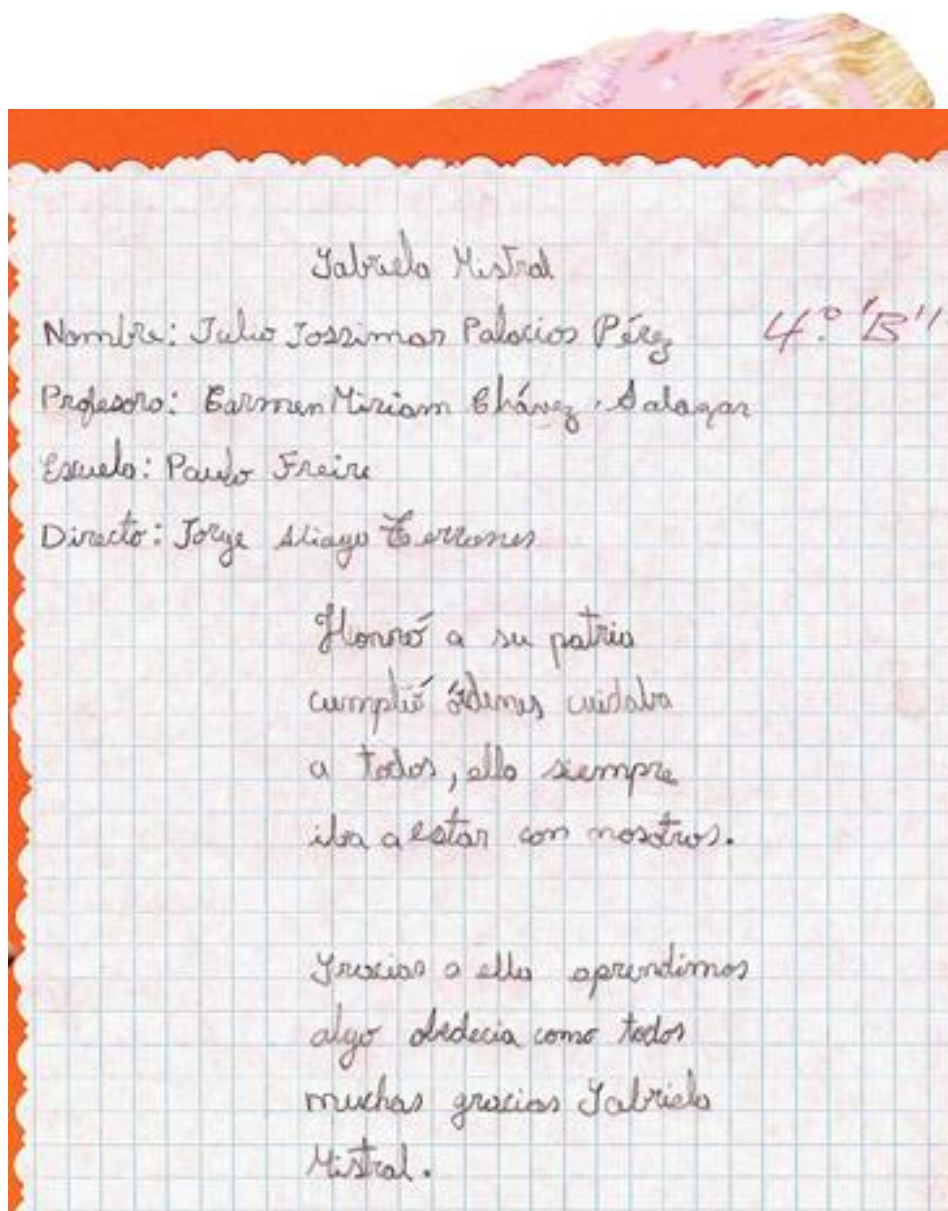 Gabriela Mistral
Nombre: Julio Jossimar Palacios Pérez 4.° "B"
Profesora: Carmen Miriam Chávez Salazar
Escuela: Paulo Freire
Directo: Jorge Aliaga Terrones
Honró a su patria
cumplió órdenes cuidaba
a todos, ella siempre
iba a estar con nosotros.
Gracias a ella aprendimos
algo obedecia como todos
muchas gracias Gabriela
Mistral.